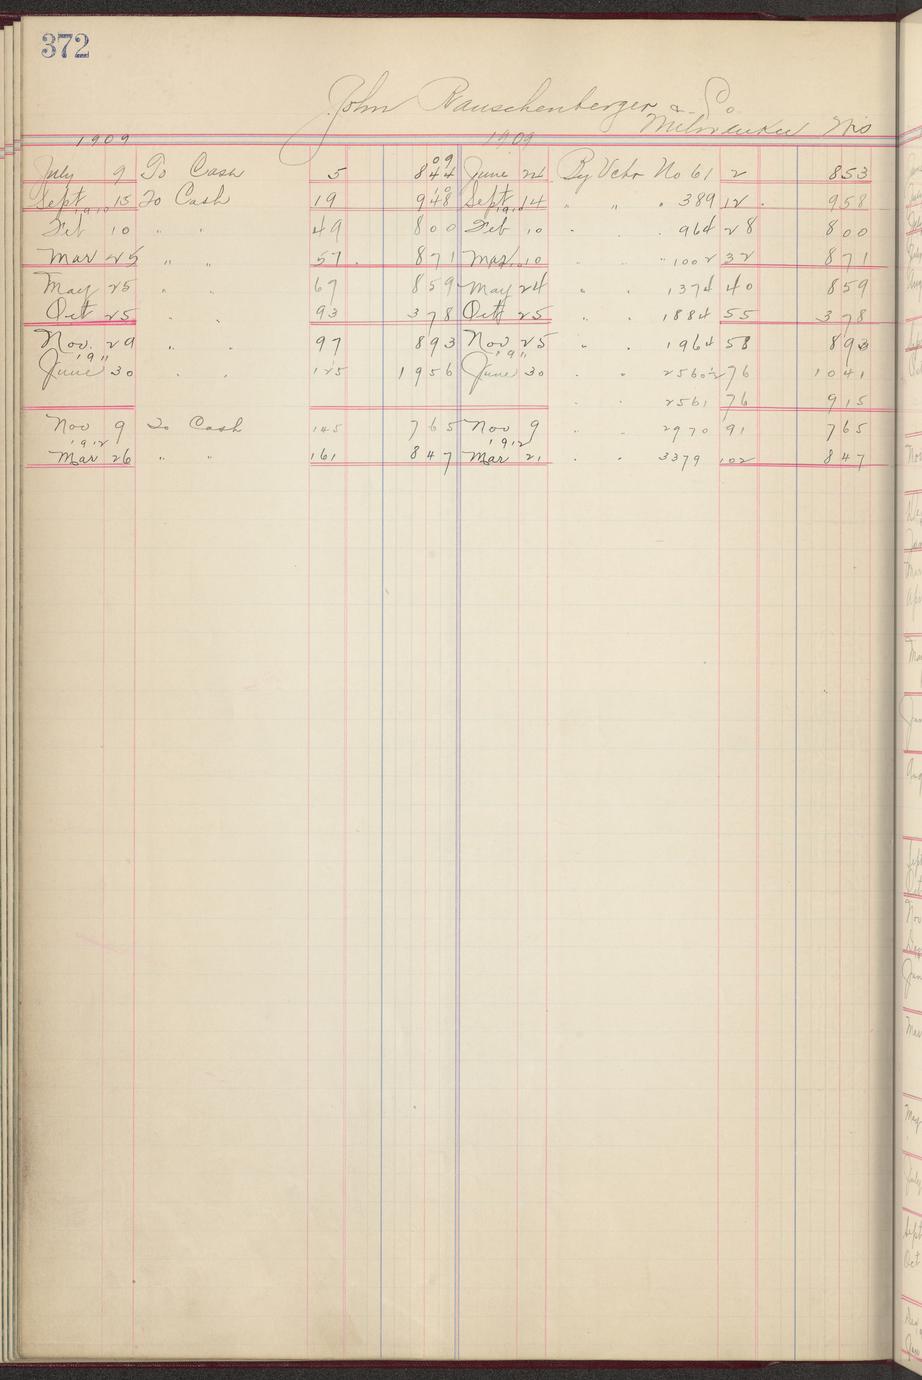 372
John Rauschenberger & Co
Milwaukee Wis
1909 1909
July 9 To Cash 5 8 44 09 June 24 By Vchr No 61 2 8 53
Sept 15 To Cash 19 9 48 10 Sept 14 " " " 389 12 9 58
1910 1910
Feb 10 " " 49 8 00 Feb 10 " " 964 28 8 00
Mar 25 " " 57 8 71 Mar 10 " " 1002 32 8 71
May 25 " " 67 8 59 May 24 " " 1374 40 8 59
Oct 25 " " 93 3 78 Oct 25 " " 1884 55 3 78
Nov. 29 " " 97 8 93 Nov 25 " " 1964 58 8 93
1911 1911
June 30 " " 125 19 56 June 30 " " 2560½ 76 10 41
" " 2561 76 9 15
Nov 9 To Cash 145 7 65 Nov 9 " " 2970 91 7 65
1912 1912
Mar 26 " " 161 8 47 Mar 21 " " 3379 102 8 47